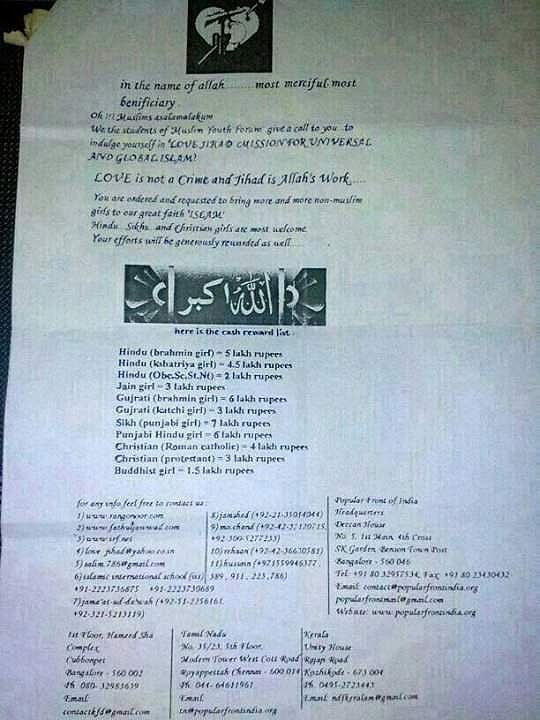 in the name of allah.........most merciful most
benificiary .
Oh !!! Muslims asalamalakum
We the students of Muslim Youth Forum give a call to you to
indulge yourself in 'LOVE JIHAD' MISSION FOR UNIVERSAL
AND GLOBAL ISLAM!
LOVE is not a Crime and Jihad is Allah's Work.....
You are ordered and requested to bring more and more non-muslim
girls to our great faith 'ISLAM'
Hindu.. Sikhs.. and Christian girls are most welcome
Your efforts will be generously rewarded as well.....
الله اكبر
here is the cash reward list .
Hindu (brahmin girl) = 5 lakh rupees
Hindu (kshatriya girl) = 4.5 lakh rupees
Hindu (Obc.Sc.St.Nt) = 2 lakh rupees
Jain girl = 3 lakh rupees
Gujrati (brahmin girl) = 6 lakh rupees
Gujrati (katchi girl) = 3 lakh rupees
Sikh (punjabi girl) = 7 lakh rupees
Punjabi Hindu girl = 6 lakh rupees
Christian (Roman catholic) = 4 lakh rupees
Christian (protestant) = 3 lakh rupees
Buddhist girl = 1.5 lakh rupees
for any info feel free to contact us :
1) www.rangonoor.com
2) www.fathuljawwad.com
3) www.irf.net
4) love_jihad@yahoo.co.in
5) salim.786@gmail.com
6) islamic international school (iis)
+91-2223736875 +91-2223730689
7) jama'at-ud-da'wah (+92-51-2256161,
+92-321-5213119)
8) jamshed (+92-21-35014044)
9) mo.chand (+92-42-37120715,
+92-300-5277233)
10) rehaan (+92-42-36630581)
11) hussain (+971559946377 ,
389 , 911 , 223 , 786)
Popular Front of India
Headquarters
Deccan House
No. 5, 1st Main, 4th Cross
SK Garden, Benson Town Post
Bangalore - 560 046
Tel: +91 80 32957534, Fax: +91 80 23430432
Email: contact@popularfrontindia.org
popularfrontmail@gmail.com
Website: www.popularfrontindia.org
1st Floor, Hameed Sha
Complex
Cubbonpet
Bangalore - 560 002
Ph: 080- 32983639
Email:
contactkfd@gmail.com
Tamil Nadu
No. 35/23, 5th Floor,
Modern Tower West Cott Road
Royappettah Chennai - 600 014
Ph: 044- 64611961
Email:
tn@popularfrontindia.org
Kerala
Unity House
Rajaji Road
Kozhikode - 673 004
Ph. 0495-2723443
Email: ndfkeralam@gmail.com